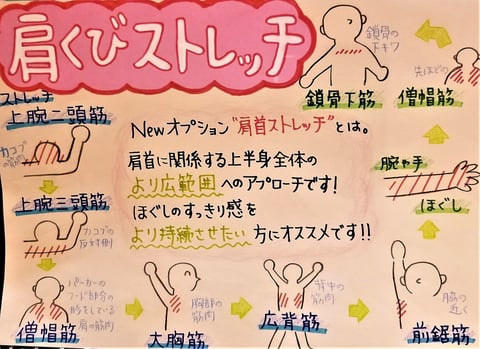 肩くびストレッチ
ストレッチ
上腕二頭筋
カコブ
の筋肉
上腕三頭筋
カコブの
反対側
パーカーの
フード部分の
形をしている
肩の筋肉
僧帽筋
胸部の
筋肉
大胸筋
背中の
筋肉
広背筋
脇の
近く
前鋸筋
ほぐし
腕や手
先ほどの
僧帽筋
鎖骨の
下キワ
鎖骨下筋
Newオプション"肩首ストレッチ"とは。
肩首に関係する上半身全体の
より広範囲へのアプローチです!
ほぐしのすっきり感を
より持続させたい方にオススメです!!